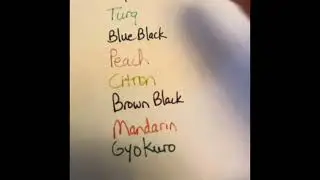 Turq
Blue Black
Peach
Citron
Brown Black
Mandarin
Gyokuro